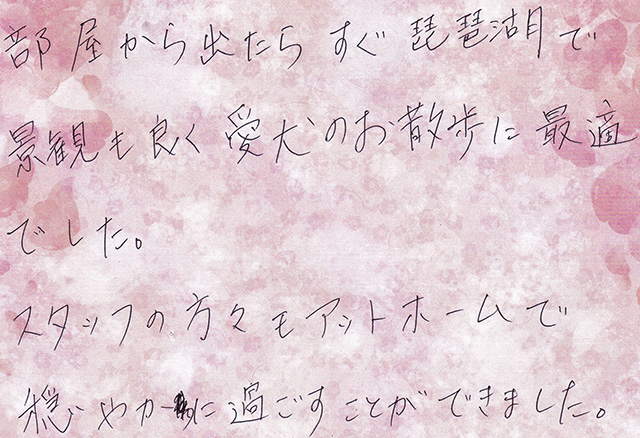 部屋から出たら すぐ 琵琶湖で
景観も良く 愛犬のお散歩に 最適
でした。
スタッフの方々もアットホームで
穏やかに過ごすことができました。